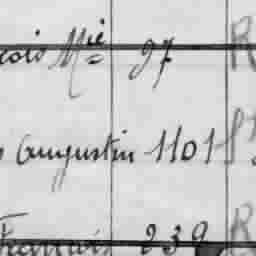 çois Mie 97 R
augustin 1101
François 239 R